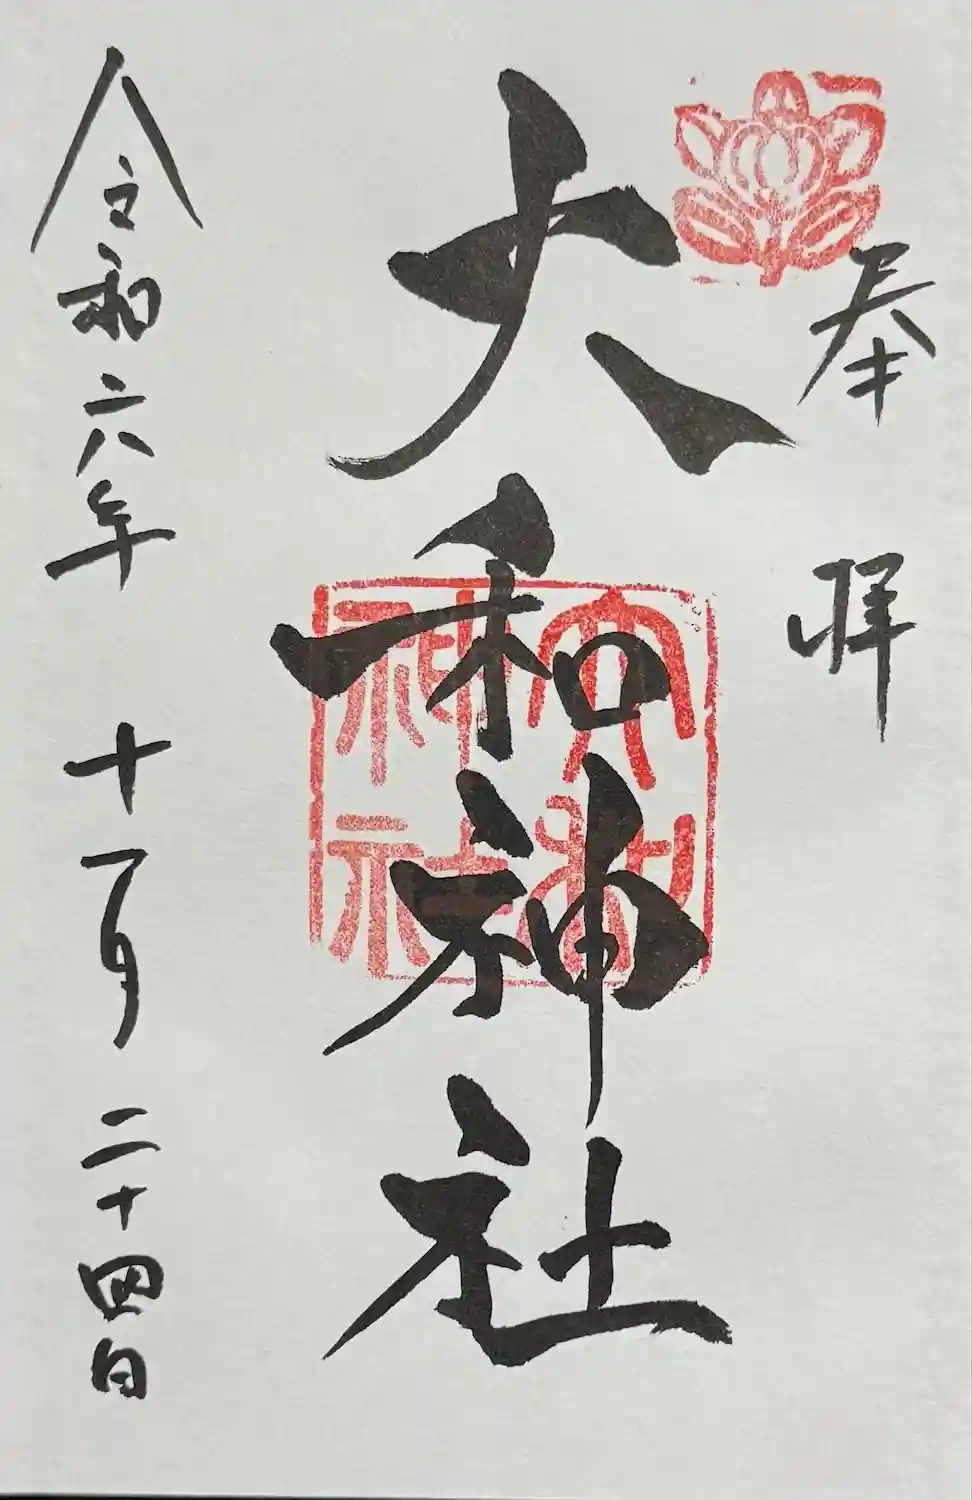 奉拝
大和神社
大和
神社
令和六年十一月二十四日